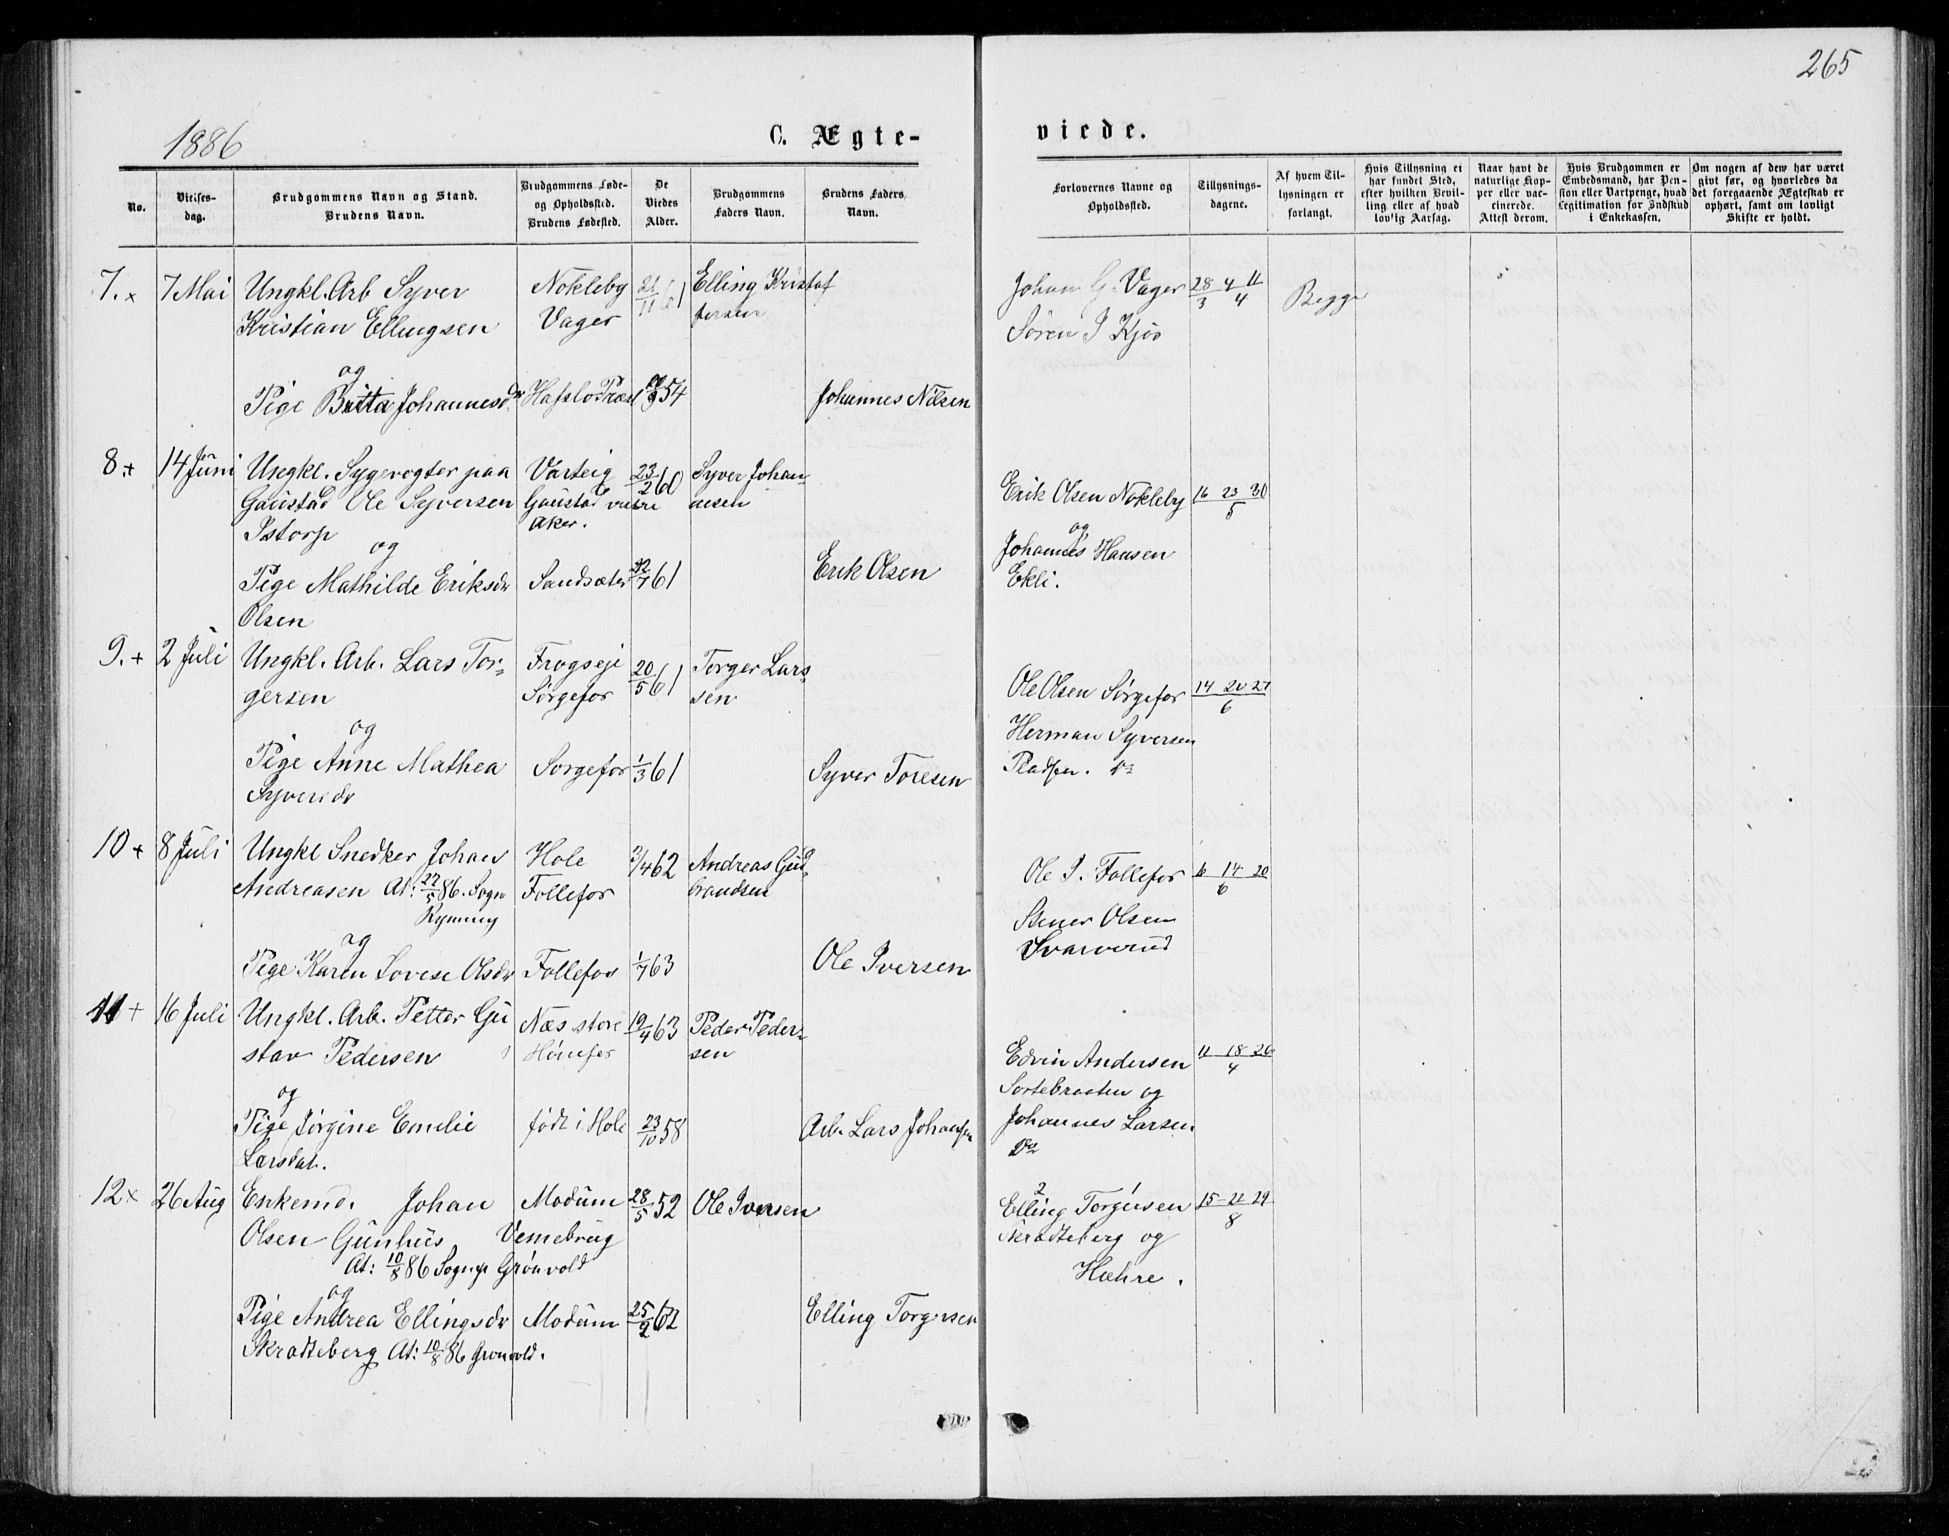 265
1886
C. Ægte-
viede.
No.
Vielses-
dag.
Brudgommens Navn og Stand.
Brudens Navn.
Brudgommens Føde-
og Opholdssted.
Brudens Fødested.
De
Viedes
Alder.
Brudgommens
Faders Navn.
Brudens Faders
Navn.
Forlovernes Navne og
Opholdssted.
Tillysnings-
dagene.
Af hvem Til-
lysningen er
forlangt.
Hvis Tillysning ei
har fundet Sted,
efter hvilken Bevil-
ling eller af hvad
lovlig Aarsag.
Naar havt de
naturlige Kop-
per eller vac-
cinerede.
Attest derom.
Hvis Brudgommen er
Embedsmand, har Pen-
sion eller Vartpenge, hvad
Legitimation for Indskud
i Enkekassen.
Om nogen af dem har været
givt før, og hvorledes da
det foregaaende Ægteskab er
ophørt, samt om lovligt
Skifte er holdt.
7. x 7 Mai Ungkl. Arb Syver Nokleby 21/11 61 Elling Kristof Johan G. Vager 28/3 4 11/4 Begge
Kristian Ellingsen Vager fersen Sören J Kjös
og
Pige Britta Johannesdr Hafslo Præst 54 Johannes Nilsen
8. + 14 Juni Ungkl. Sygevogter paa Varteig 23/2 60 Syver Johan-
Gaustad Ole Syversen Gaustad vestre nesen Erik Olsen Nokleby 16 23 30/5
Istorp Aker.
og og
Johannes Hansen
Pige Mathilde Eriksdr Sandsæter 12/7 61 Erik Olsen Ekli.
Olsen
9. + 2 Juli Ungkl. Arb. Lars Tor- Frogseje 20/5 61 Torger Lars-
gersen Sørgefos sen Ole Olsen Sørgefos 14 20 27/6
og Herman Syversen
Pige Anne Mathea Sorgefos 1/3 61 Syver Toresen Pladsen. Do
Syversdr
10 + 8 Juli Ungkl Snedker Johan Hole 3/4 62 Andreas Gud- Ole I. Follefos 6 14 20/6
Andreasen At: 27/5 86. Sogn Follefos brandsen
Rynning Stener Olsen
og Svarverud
Pige Karen Lovise Olsdr Follefos 1/7 63 Ole Iversen
11 + 16 Juli Ungkl. Arb. Petter Gu Næs store 19/4 63 Peder Peder-
stav Pedersen Hönefos sen Edvin Andersen 11 18 26/4
og Sortebraaten og
Pige Jörgine Emelie født i Hole 23/10 58 Arb. Lars Johansen Johannes Larsen
Larsdat. Do
12 x 26 Aug Enkemd. Johan Modum 28/5 52 Ole Iversen Elling Torgersen 15 22 29/8
Olsen Gunhus Vemebrug Skradteberg og
At: 10/8 86 Sognpr Grönvold Hæhre.
og
Pige Andrea Ellingsdr Modum 25/2 62 Elling Torgersen
Skradteberg At: 10/8 86 Gronvold.